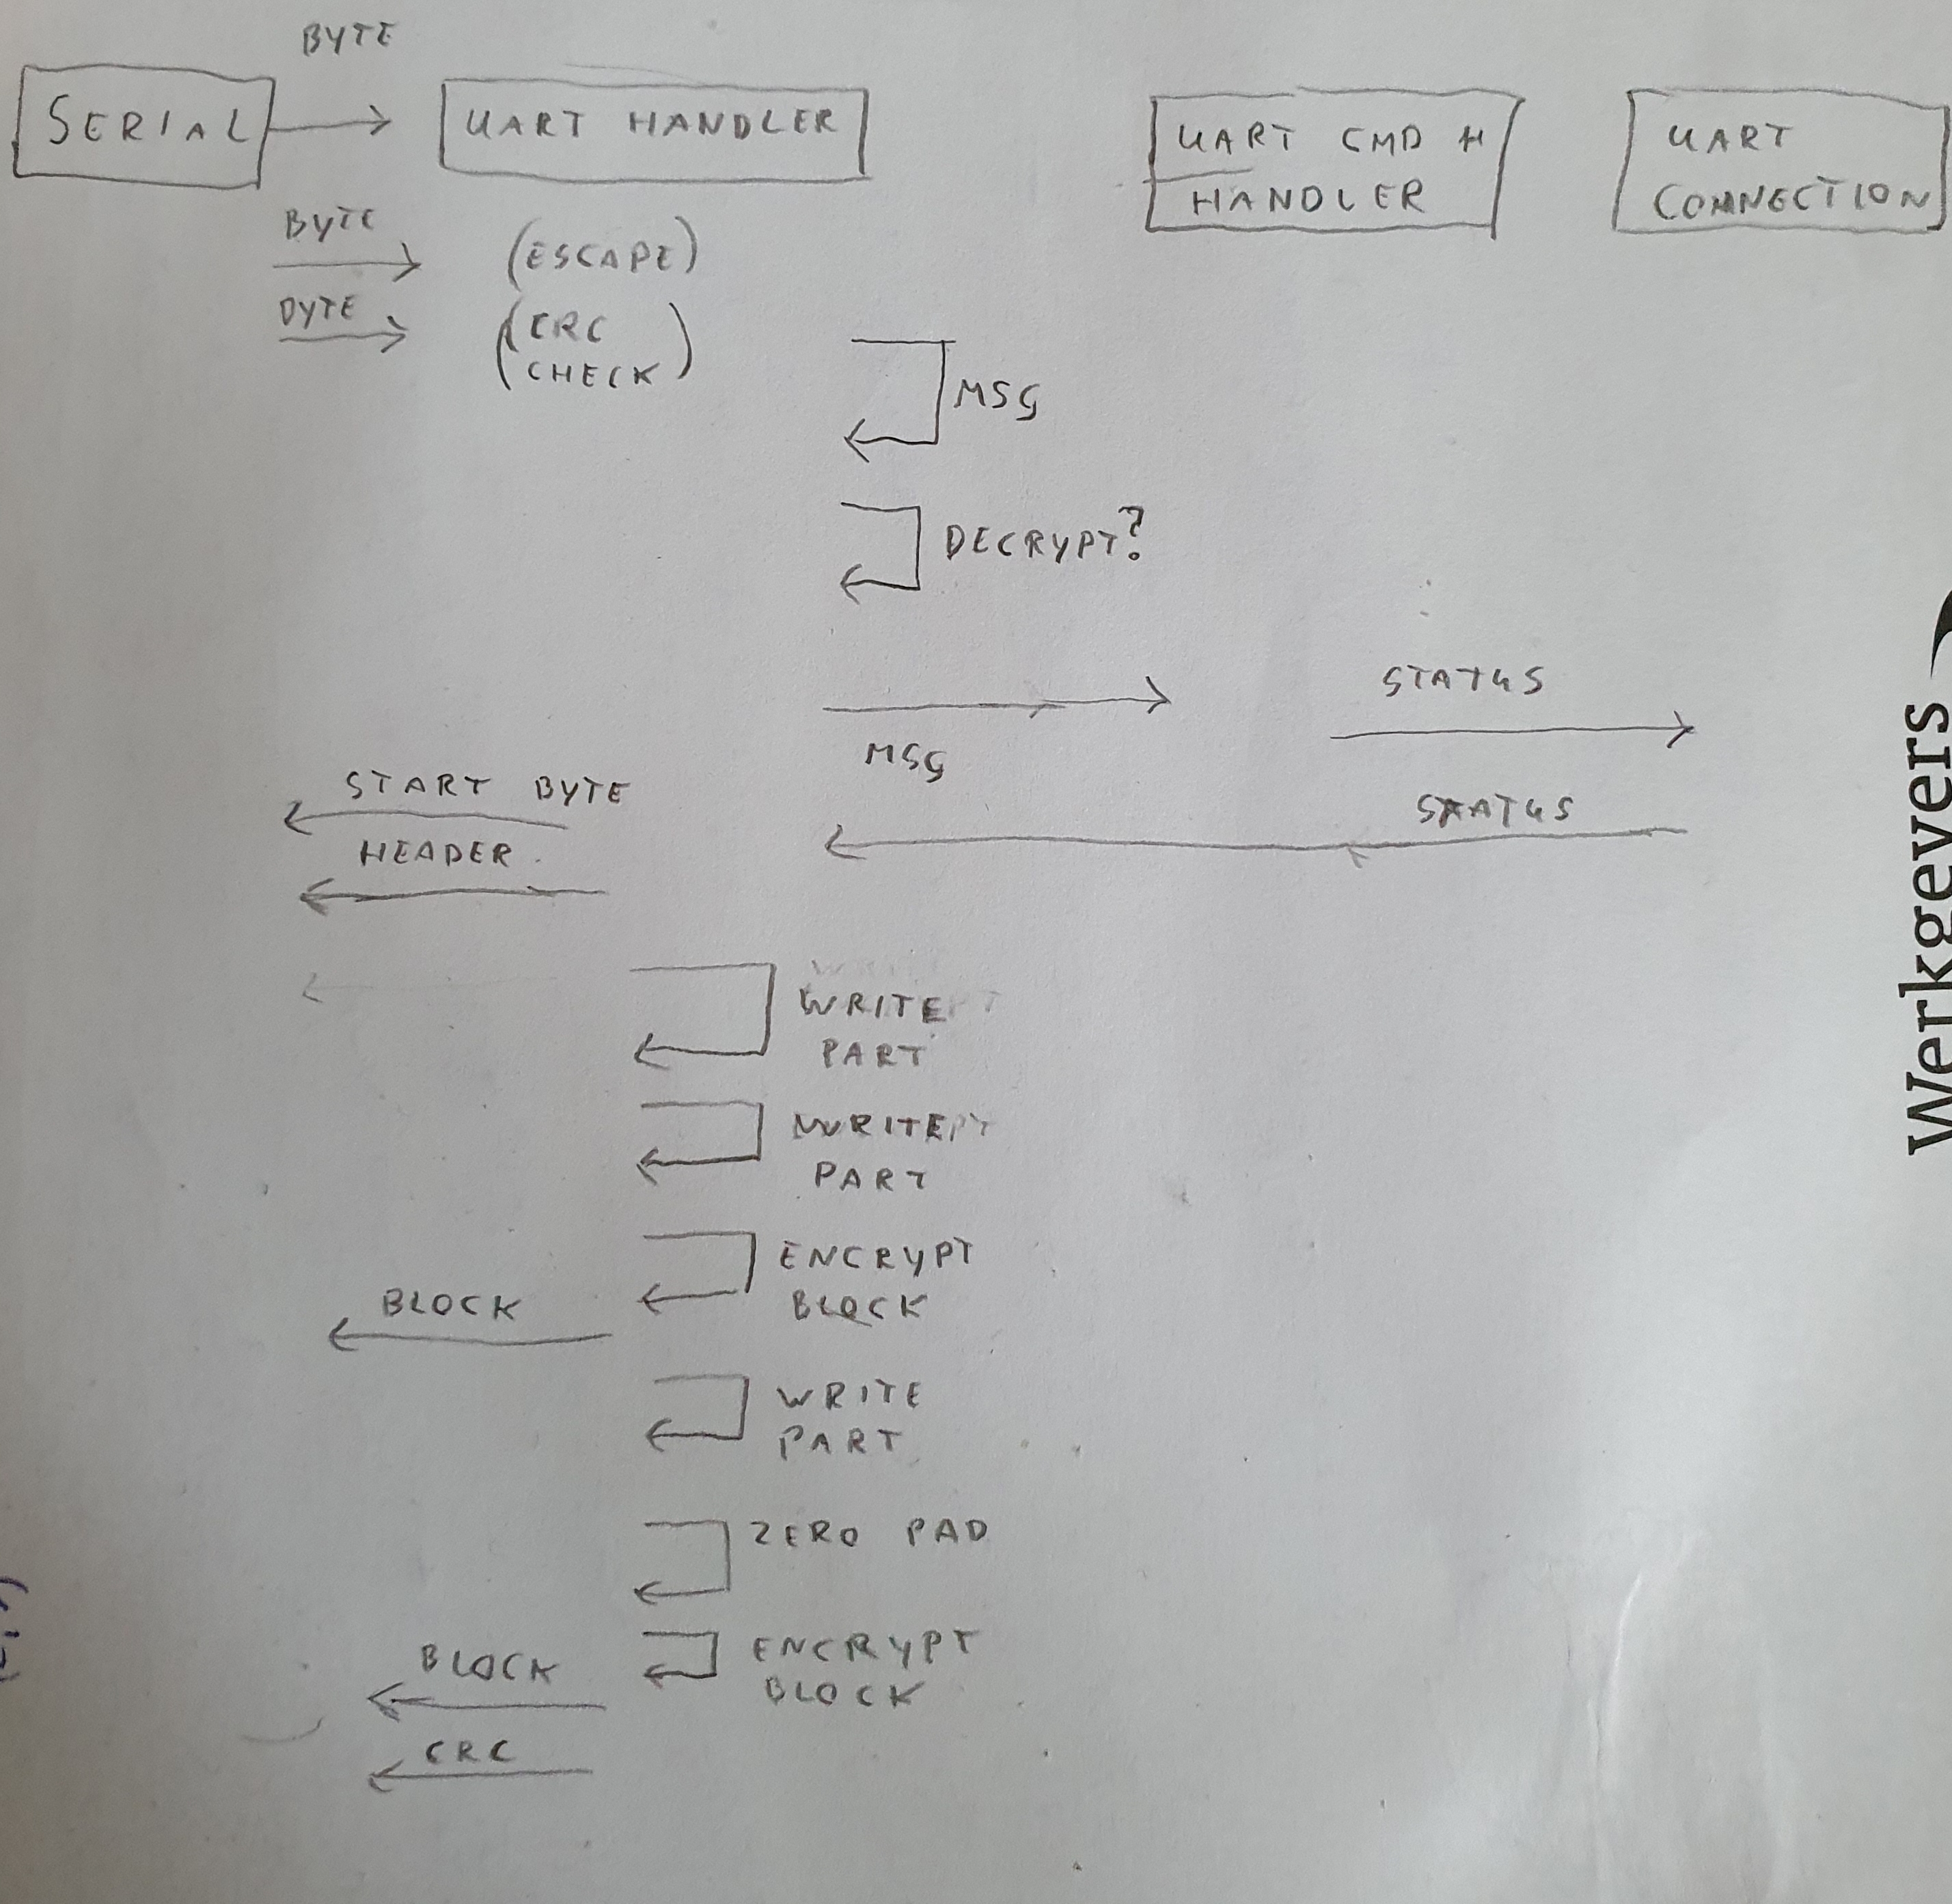 BYTE
SERIAL
UART HANDLER
UART CMD H
HANDLER
UART
CONNECTION
BYTE
(ESCAPE)
BYTE
(CRC
CHECK)
MSG
DECRYPT?
STATUS
MSG
START BYTE
STATUS
HEADER
WRITE
PART
WRITE
PART
ENCRYPT
BLOCK
BLOCK
WRITE
PART
ZERO PAD
ENCRYPT
BLOCK
BLOCK
CRC
Werkgevers